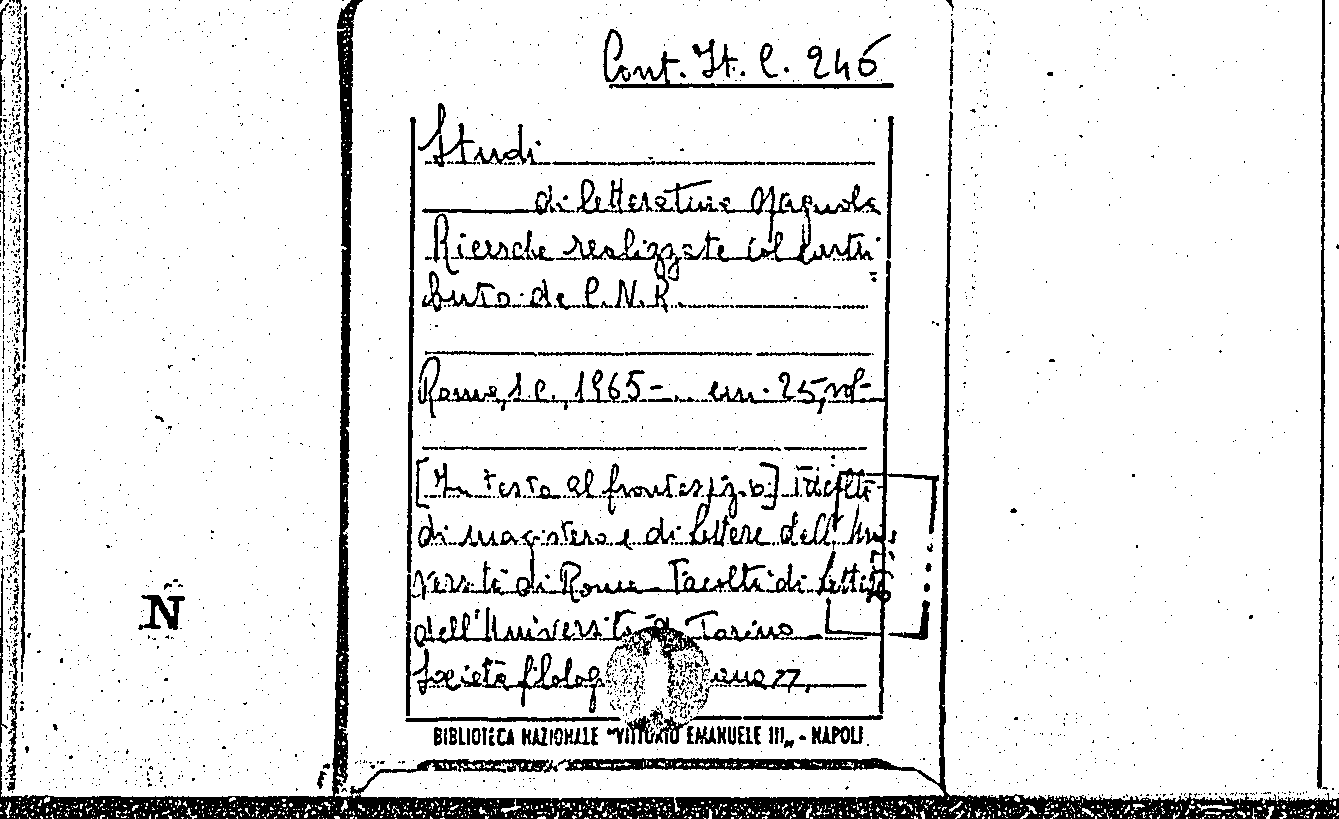 Cont. It. C. 246
Studi
di letteratura spagnola
Ricerche realizzate col contri=
buto del C.N.R.
Roma, s.e., 1965-.. cm. 25, vol-
[In testa al frontespizio] Facoltà
di magistero e di lettere dell'Uni=
versità di Roma - Facoltà di lettere
dell'Università di Torino
Società filolog
N
BIBLIOTECA NAZIONALE "VITTORIO EMANUELE III„ - NAPOLI